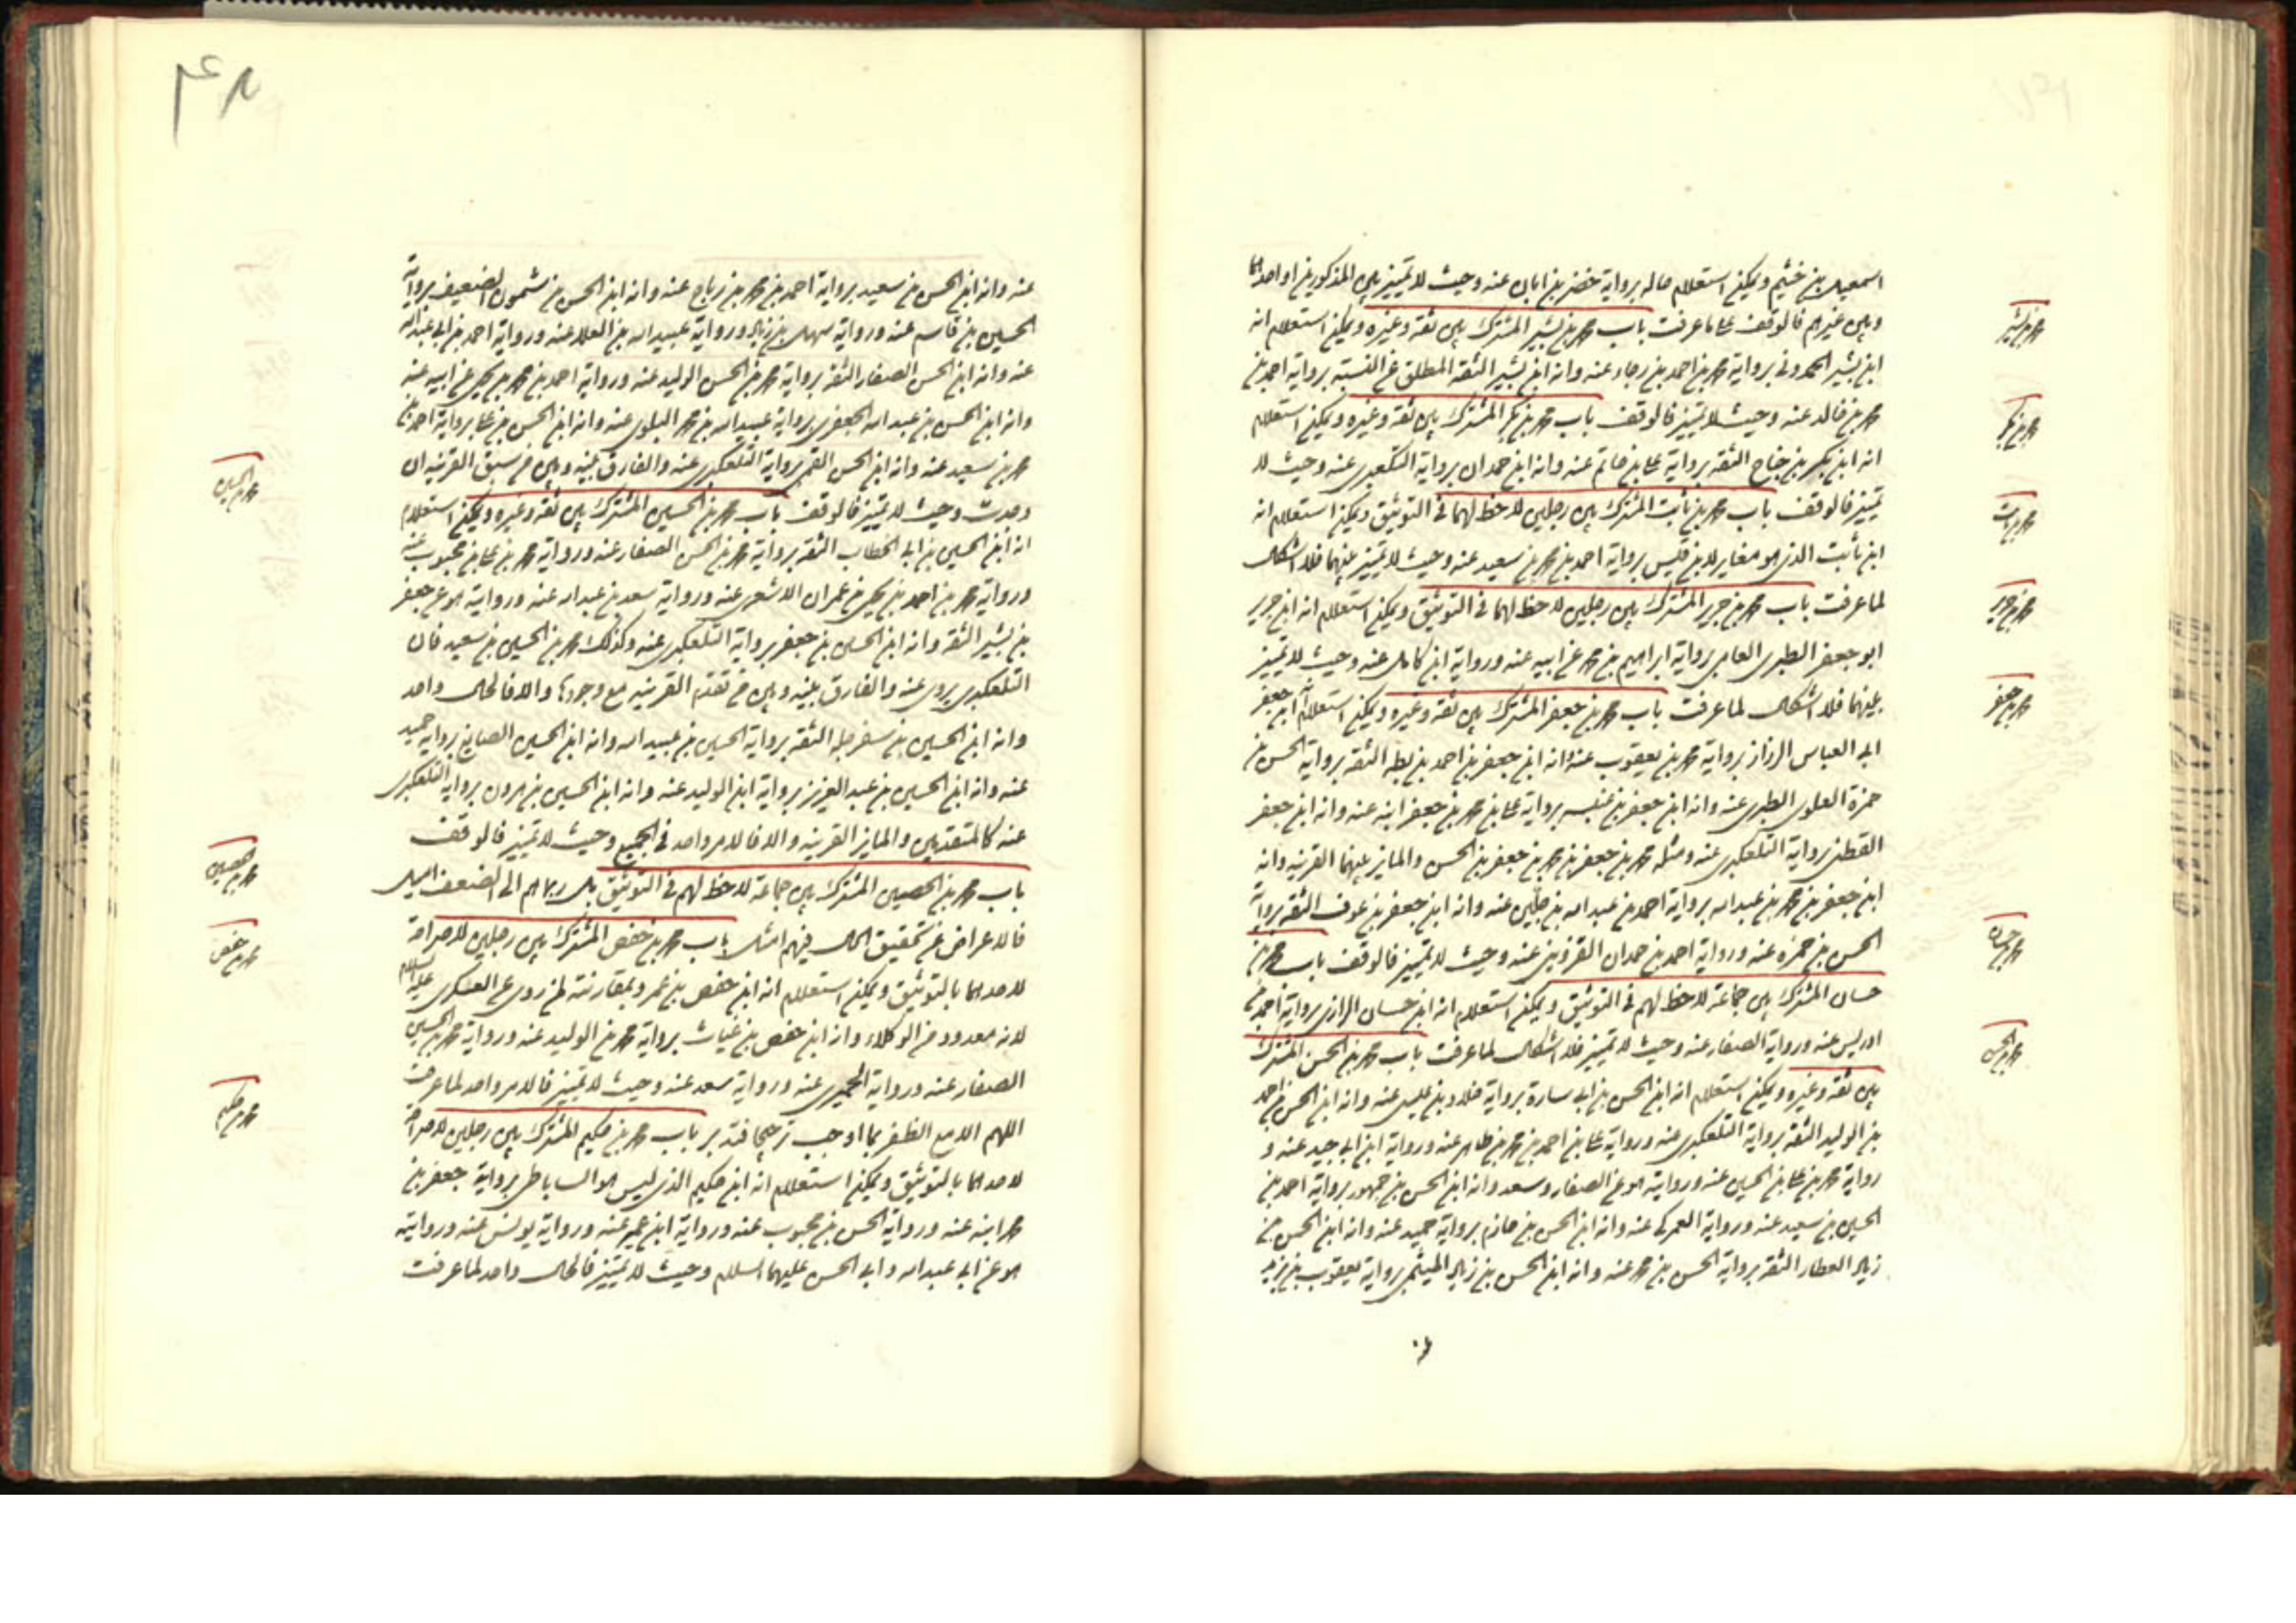 اسمعيل بن خثيم ويمكن استعلام حاله برواية خضر بن ابان عنه وحيث لا تميز بين المذكورين او احدهما
وبين غيرهم فالوقف لما عرفت باب محمد بن بشير المشترك بين ثقة وغيره ويمكن استعلام انه
ابن بشير الحمدوني برواية محمد بن احمد بن رجاء عنه وانه ابن بشير الثقة المطلق عن النسبة برواية احمد بن
محمد بن خالد عنه وحيث لا تميز فالوقف باب محمد بن بكر المشترك بين ثقة وغيره ويمكن استعلام
انه ابن بكر بن جناح الثقة برواية علي بن حاتم عنه وانه ابن حمدان برواية التلعكبري عنه وحيث لا
تميز فالوقف باب محمد بن ثابت المشترك بين رجلين لا حظ لهما في التوثيق ويمكن استعلام انه
ابن ثابت الذي هو مغاير لابن قيس برواية احمد بن محمد بن سعيد عنه وحيث لا تميز بينهما فلا اشكال
لما عرفت باب محمد بن جرير المشترك بين رجلين لا حظ لهما في التوثيق ويمكن استعلام انه ابن جرير
ابو جعفر الطبري العامي برواية ابراهيم بن محمد عن ابيه عنه ورواية ابن كامل عنه وحيث لا تميز
بينهما فلا اشكال لما عرفت باب محمد بن جعفر المشترك بين ثقة وغيره ويمكن استعلام انه ابن جعفر
ابي العباس الرزاز برواية محمد بن يعقوب عنه وانه ابن جعفر بن احمد بن بطة الثقة برواية الحسن بن
حمزة العلوي الطبري عنه وانه ابن جعفر بن عنبسه برواية علي بن محمد بن جعفر ابنه عنه وانه ابن جعفر
القطني برواية التلعكبري عنه ومثله محمد بن جعفر بن محمد بن جعفر بن الحسن والمايز بينهما القرينه وانه
ابن جعفر بن محمد بن عبدالله برواية احمد بن عبدالله بن جلين عنه وانه ابن جعفر بن عوف الثقة برواية
الحسن بن حمزه عنه ورواية احمد بن حمدان القزويني عنه وحيث لا تميز فالوقف باب محمد بن
حسان المشترك بين جماعة لا حظ لهم في التوثيق ويمكن استعلام انه ابن حسان الرازي برواية احمد بن
ادريس عنه ورواية الصفار عنه وحيث لا تميز فلا اشكال لما عرفت باب محمد بن الحسن المشترك
بين ثقة وغيره ويمكن استعلام انه ابن الحسن بن ابي سارة برواية خلاد بن عيسى عنه وانه ابن الحسن بن احمد
بن الوليد الثقة برواية التلعكبري عنه ورواية علي بن احمد بن محمد بن طاهر عنه ورواية ابن ابي جيد عنه و
رواية محمد بن علي بن الحسين عنه وروايته هو عن الصفار وسعد وانه ابن الحسن بن جمهور برواية احمد بن
الحسين بن سعيد عنه ورواية العمركي عنه وانه ابن الحسن بن حازم برواية حميد عنه وانه ابن الحسن بن
زياد العطار الثقة برواية الحسن بن محمد عنه وانه ابن الحسن بن زياد الميثمي برواية يعقوب بن يزيد
محمد بن بشير
محمد بن بكر
محمد بن ثابت
محمد بن جرير
محمد بن جعفر
محمد بن حسان
محمد بن الحسن
عنه
عنه وانه ابن الحسن بن سعيد برواية احمد بن محمد بن رباح عنه وانه ابن الحسن بن شمون الضعيف برواية
الحسين بن قاسم عنه ورواية سهل بن زياد ورواية عبيدالله بن العلا عنه ورواية احمد بن ابي عبدالله
عنه وانه ابن الحسن الصفار الثقة برواية محمد بن الحسن الوليد عنه ورواية احمد بن محمد بن يحيى عن ابيه عنه
وانه ابن الحسن بن عبدالله الجعفري برواية عبيدالله بن محمد البلوي عنه وانه ابن الحسن بن علي برواية احمد بن
محمد بن سعيد عنه وانه ابن الحسن القمي برواية التلعكبري عنه والفارق بينه وبين من سبق القرينه ان
وجدت وحيث لا تميز فالوقف باب محمد بن الحسين المشترك بين ثقة وغيره ويمكن استعلام
انه ابن الحسين بن ابي الخطاب الثقة برواية محمد بن الحسن الصفار عنه ورواية محمد بن علي بن محبوب عنه
ورواية محمد بن احمد بن يحيى بن عمران الاشعري عنه ورواية سعد بن عبدالله عنه وروايته هو عن جعفر
بن بشير الثقة وانه ابن الحسين بن جعفر برواية التلعكبري عنه وكذلك محمد بن الحسين بن سعيد فان
التلعكبري يروي عنه والفارق بينه وبين من تقدم القرينه مع وجودها والا فالحال واحد
وانه ابن الحسين بن سفرجله الثقة برواية الحسين بن عبيدالله وانه ابن الحسين الصايغ برواية حميد
عنه وانه ابن الحسين بن عبدالعزيز برواية ابن الوليد عنه وانه ابن الحسين بن هرون برواية التلعكبري
عنه كالمتقدمين والمايز القرينه والا فالامر واحد في الجميع وحيث لا تميز فالوقف
باب محمد بن الحصين المشترك بين جماعة لا حظ لهم في التوثيق بل ربما هم الى الضعف اميل
فالاعراض عن تحقيق الحال فيهم امثل باب محمد بن حفص المشترك بين رجلين لا صراحة
لاحدهما بالتوثيق ويمكن استعلام انه ابن حفص بن عمرو بمقارنته لمن روى عن العسكري عليه السلام
لانه معدود من الوكلاء وانه ابن حفص بن غياث برواية محمد بن الوليد عنه ورواية محمد بن الحسين
الصفار عنه ورواية الحميري عنه ورواية سعد عنه وحيث لا تميز فالامر واحد لما عرفت
اللهم الا مع الظفر بما اوجب ترجيحا فتدبر باب محمد بن حكيم المشترك بين رجلين لا صراحة
لاحدهما بالتوثيق ويمكن استعلام انه ابن حكيم الذي ليس هو الساباطي برواية جعفر بن
محمد ابنه عنه ورواية الحسن بن محبوب عنه ورواية ابن عمير عنه ورواية يونس عنه وروايته
هو عن ابي عبدالله وابي الحسن عليهما السلام وحيث لا تميز فالحال واحد لما عرفت
محمد بن الحسين
محمد بن الحصين
محمد بن حفص
محمد بن حكيم